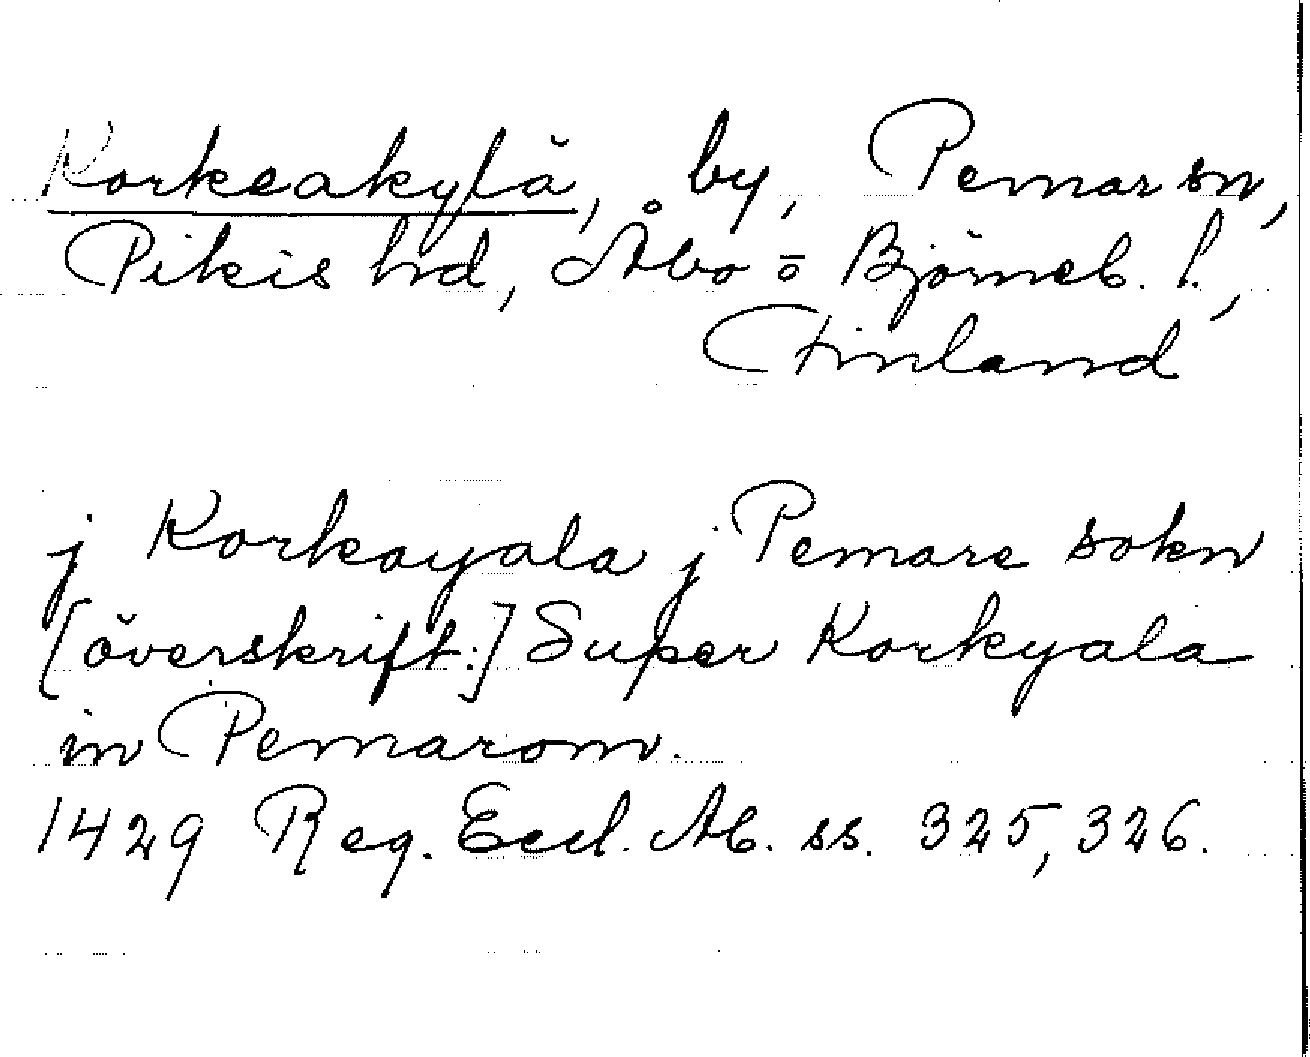 Korkeakylä, by, Pemar sn,
Pikis hd, Åbo o Björneb. l.,
Finland
j Korkoyala j Pemare sokn
[överskrift:] Super Korkyala
in Pemarom.
1429 Reg. Eccl. Ab. ss. 325, 326.